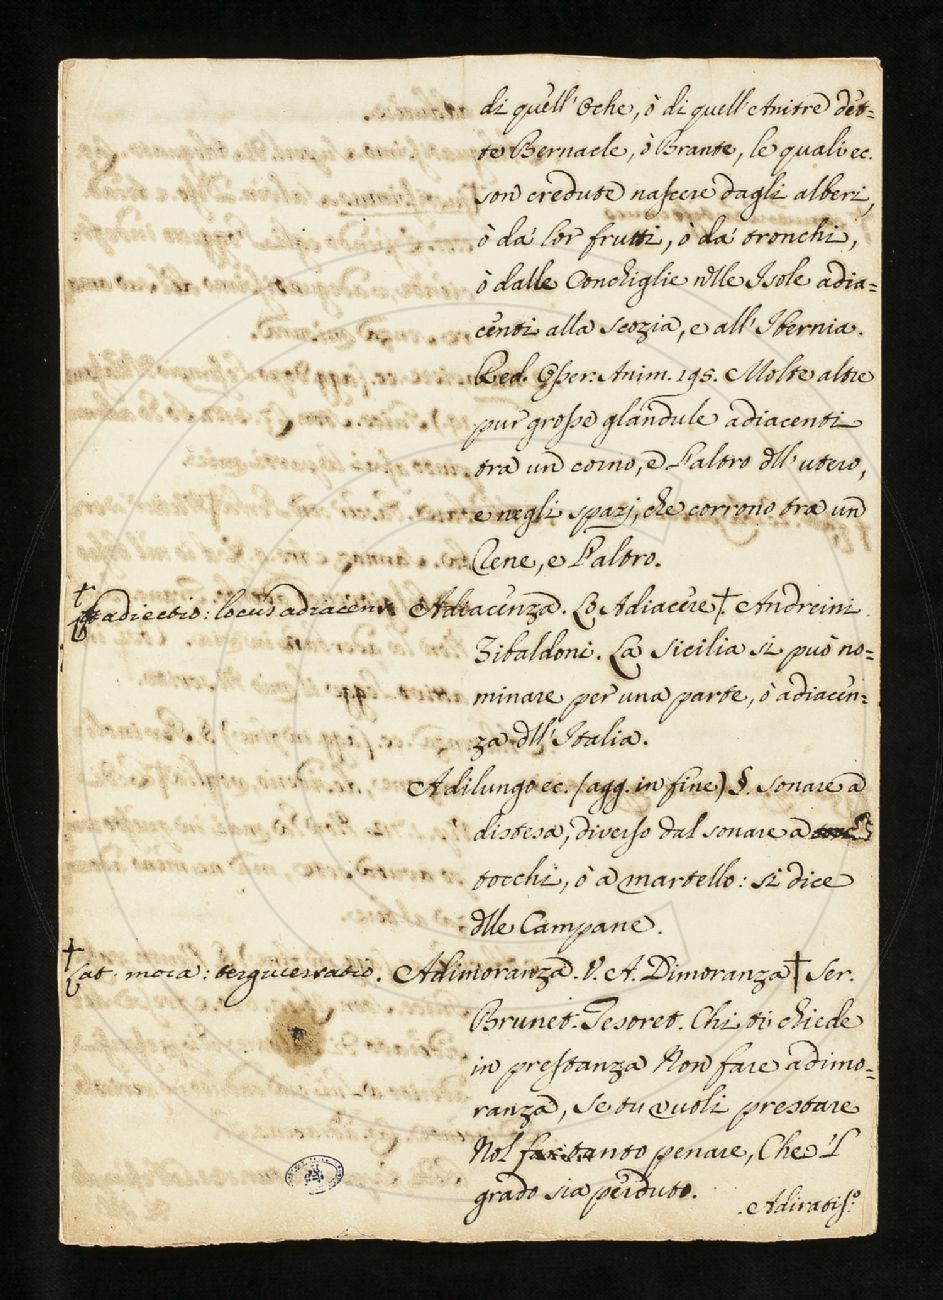 di quell' Oche, ò di quell' Anitre det=
te Bernacle, ò Brante, le quali ec.
son credute nascere dagli alberi,
ò da' lor frutti, ò da' tronchi,
ò dalle Conchiglie nlle Isole adia=
centi alla Scozia, e all' Ibernia.
Red. Osser. Anim. 195. Molte altre
pur grosse glandule adiacenti
tra un corno, e l'altro dll' utero,
e negli spazj, che corrono tra un
Rene, e l'altro.
† adiectio: locus adiacens Adiacenza. Lo Adiacere † Andreini
Zibaldoni. La Sicilia si può no=
minare per una parte, ò adiacen=
za dll' Italia.
Adilungo ec. (agg. in fine) §. Sonare a
distesa, diverso dal sonare a
tocchi, ò a martello: si dice
dlle Campane.
† Lat. mora: tergiversatio. Adimoranza. V. A. Dimoranza † Ser.
Brunet. Tesoret. Chi ti chiede
in prestanza Non fare adimo=
ranza, Se tu vuoli prestare
Nol far tanto penare, Che 'l
grado sia perduto.
Adiratis.º